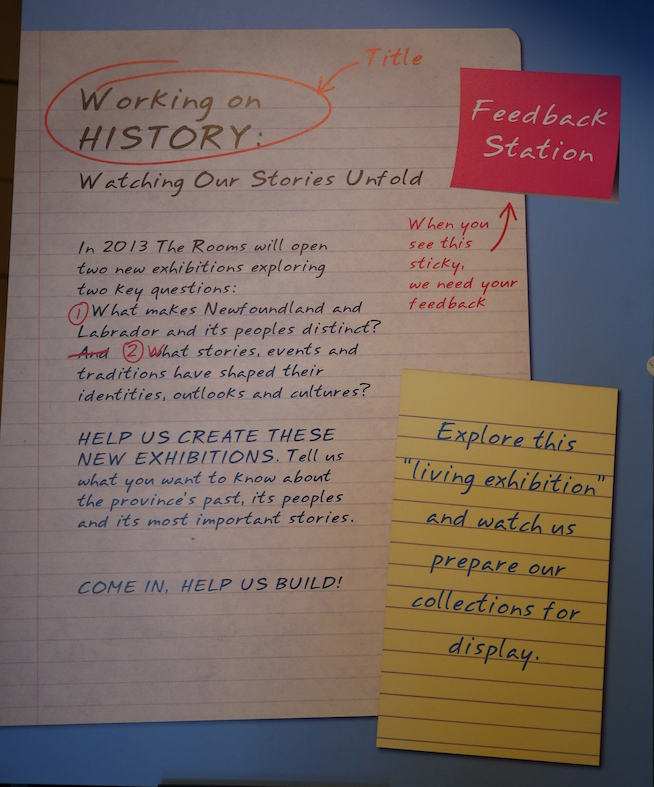 Title
Working on
HISTORY:
Watching Our Stories Unfold
Feedback
Station
When you
see this
sticky,
we need your
feedback
In 2013 The Rooms will open
two new exhibitions exploring
two key questions:
1 What makes Newfoundland and
Labrador and its peoples distinct?
And 2 What stories, events and
traditions have shaped their
identities, outlooks and cultures?
HELP US CREATE THESE
NEW EXHIBITIONS. Tell us
what you want to know about
the province's past, its peoples
and its most important stories.
COME IN, HELP US BUILD!
Explore this
"living exhibition"
and watch us
prepare our
collections for
display.